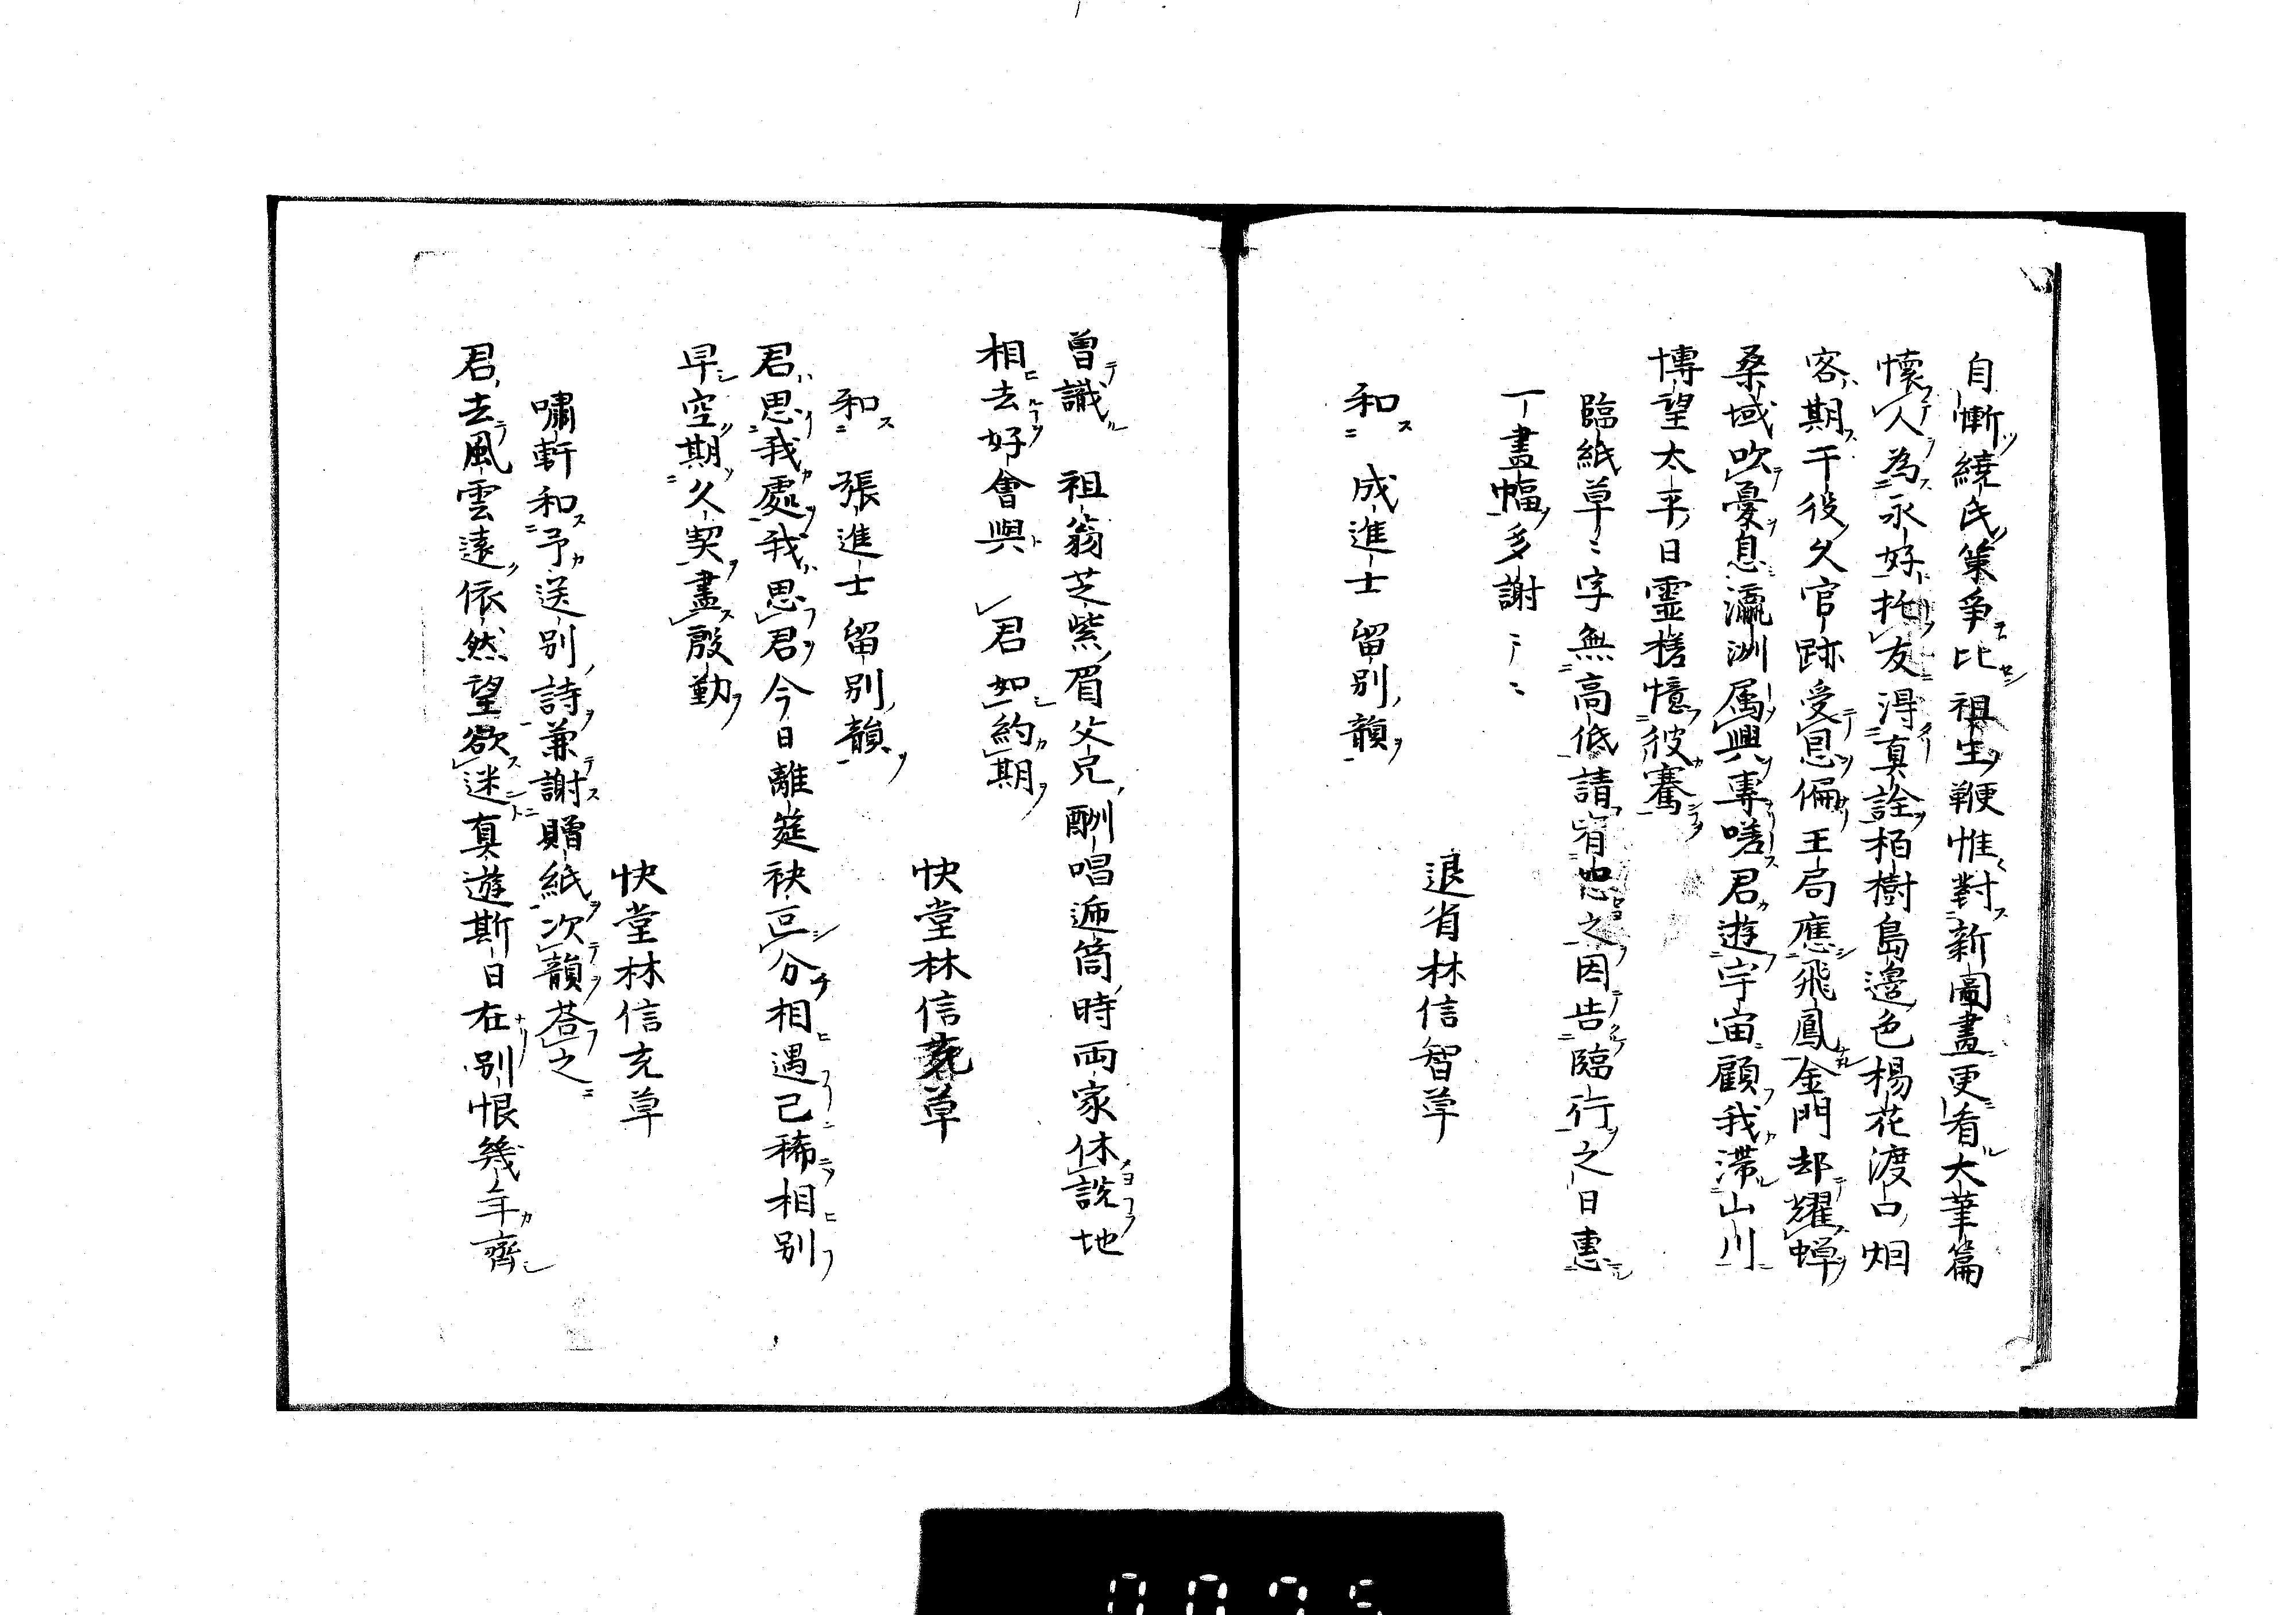 自慚繞氏策爭比祖生鞭惟對新圖畫更看大筆篇
懷人為永好托友淂真詮栢樹島邊色楊花渡口烟
客期干役久官跡受恩偏王局應飛鳳金門却耀蟬
桑域吹憂息瀛洲属興專嗟君遊宇宙顧我滯山川
博望太平日霊槎憶彼騫
臨紙草〻字無高低請宥恕之因告臨行之日惠
丁盡幅多謝〻〻
退省林信智草
和成進士留別韻
曽識 祖翁芝紫眉父兄酬唱逓筒時両家休説地
相去好會與 君如約期
快堂林信充草
和張進士留別韻
君思我處我思君今日離筵袂亘分相遇已稀相別
早空期久契盡殷勤
快堂林信充草
嘯軒和予送別詩兼謝贈紙次韻荅之
君去風雲遠依然望欲迷真遊斯日在別恨幾年齊